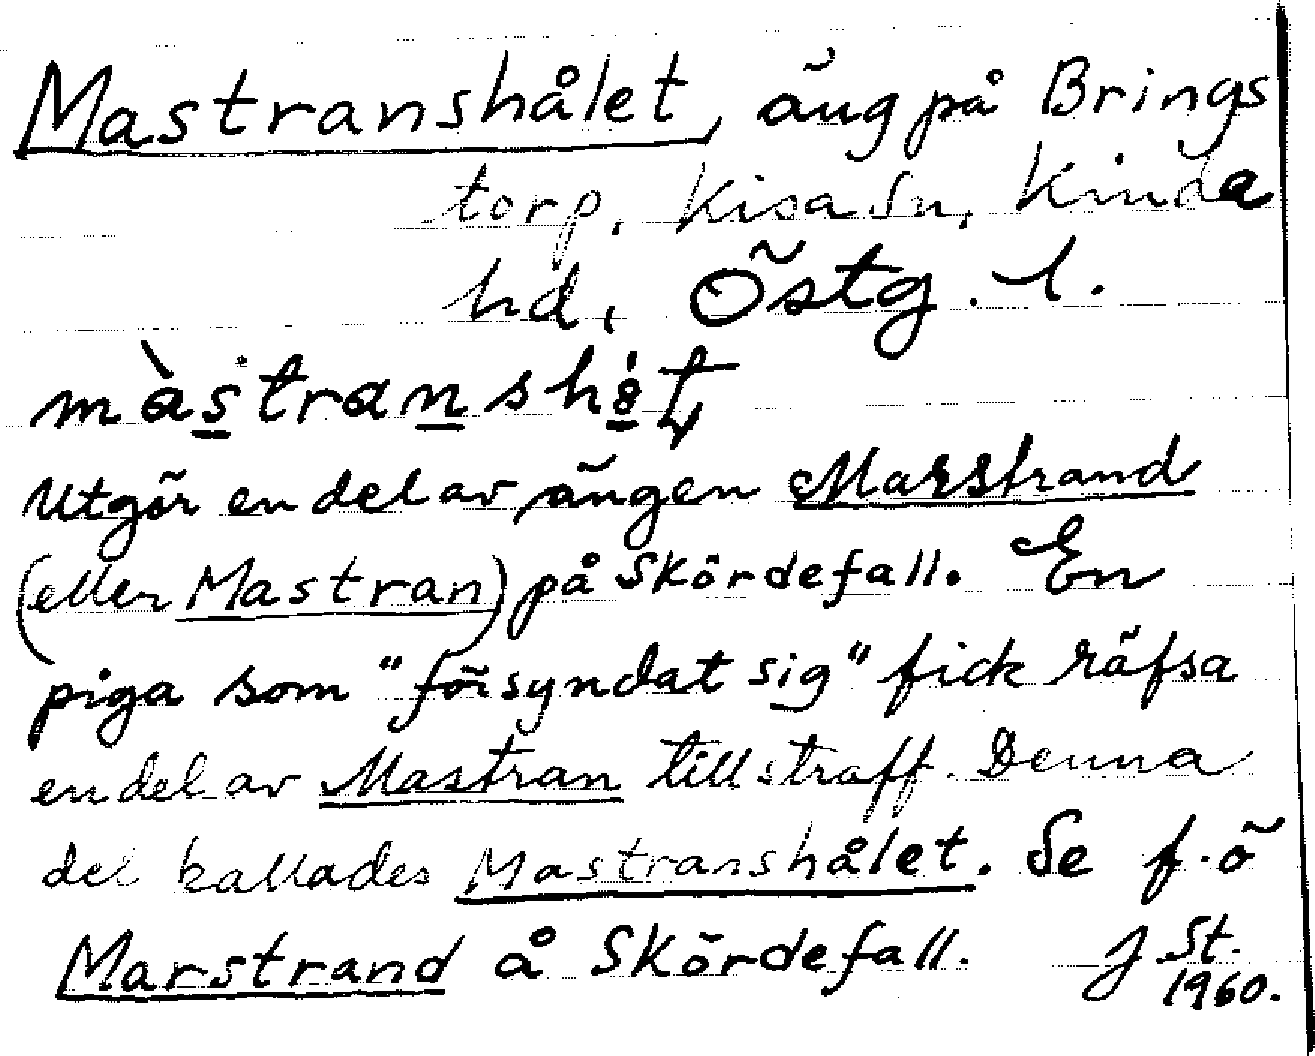 Mastranshålet, äng på Brings
torp, Kisa sn, Kinda
hd, Östg. l.
Utgör en del av ängen Marstrand
(eller Mastran) på Skördefall. En
piga som "försyndat sig" fick räfsa
en del av Mastran till straff. Denna
del kallades Mastranshålet. Se f.ö
Marstrand å Skördefall. J St.
1960.